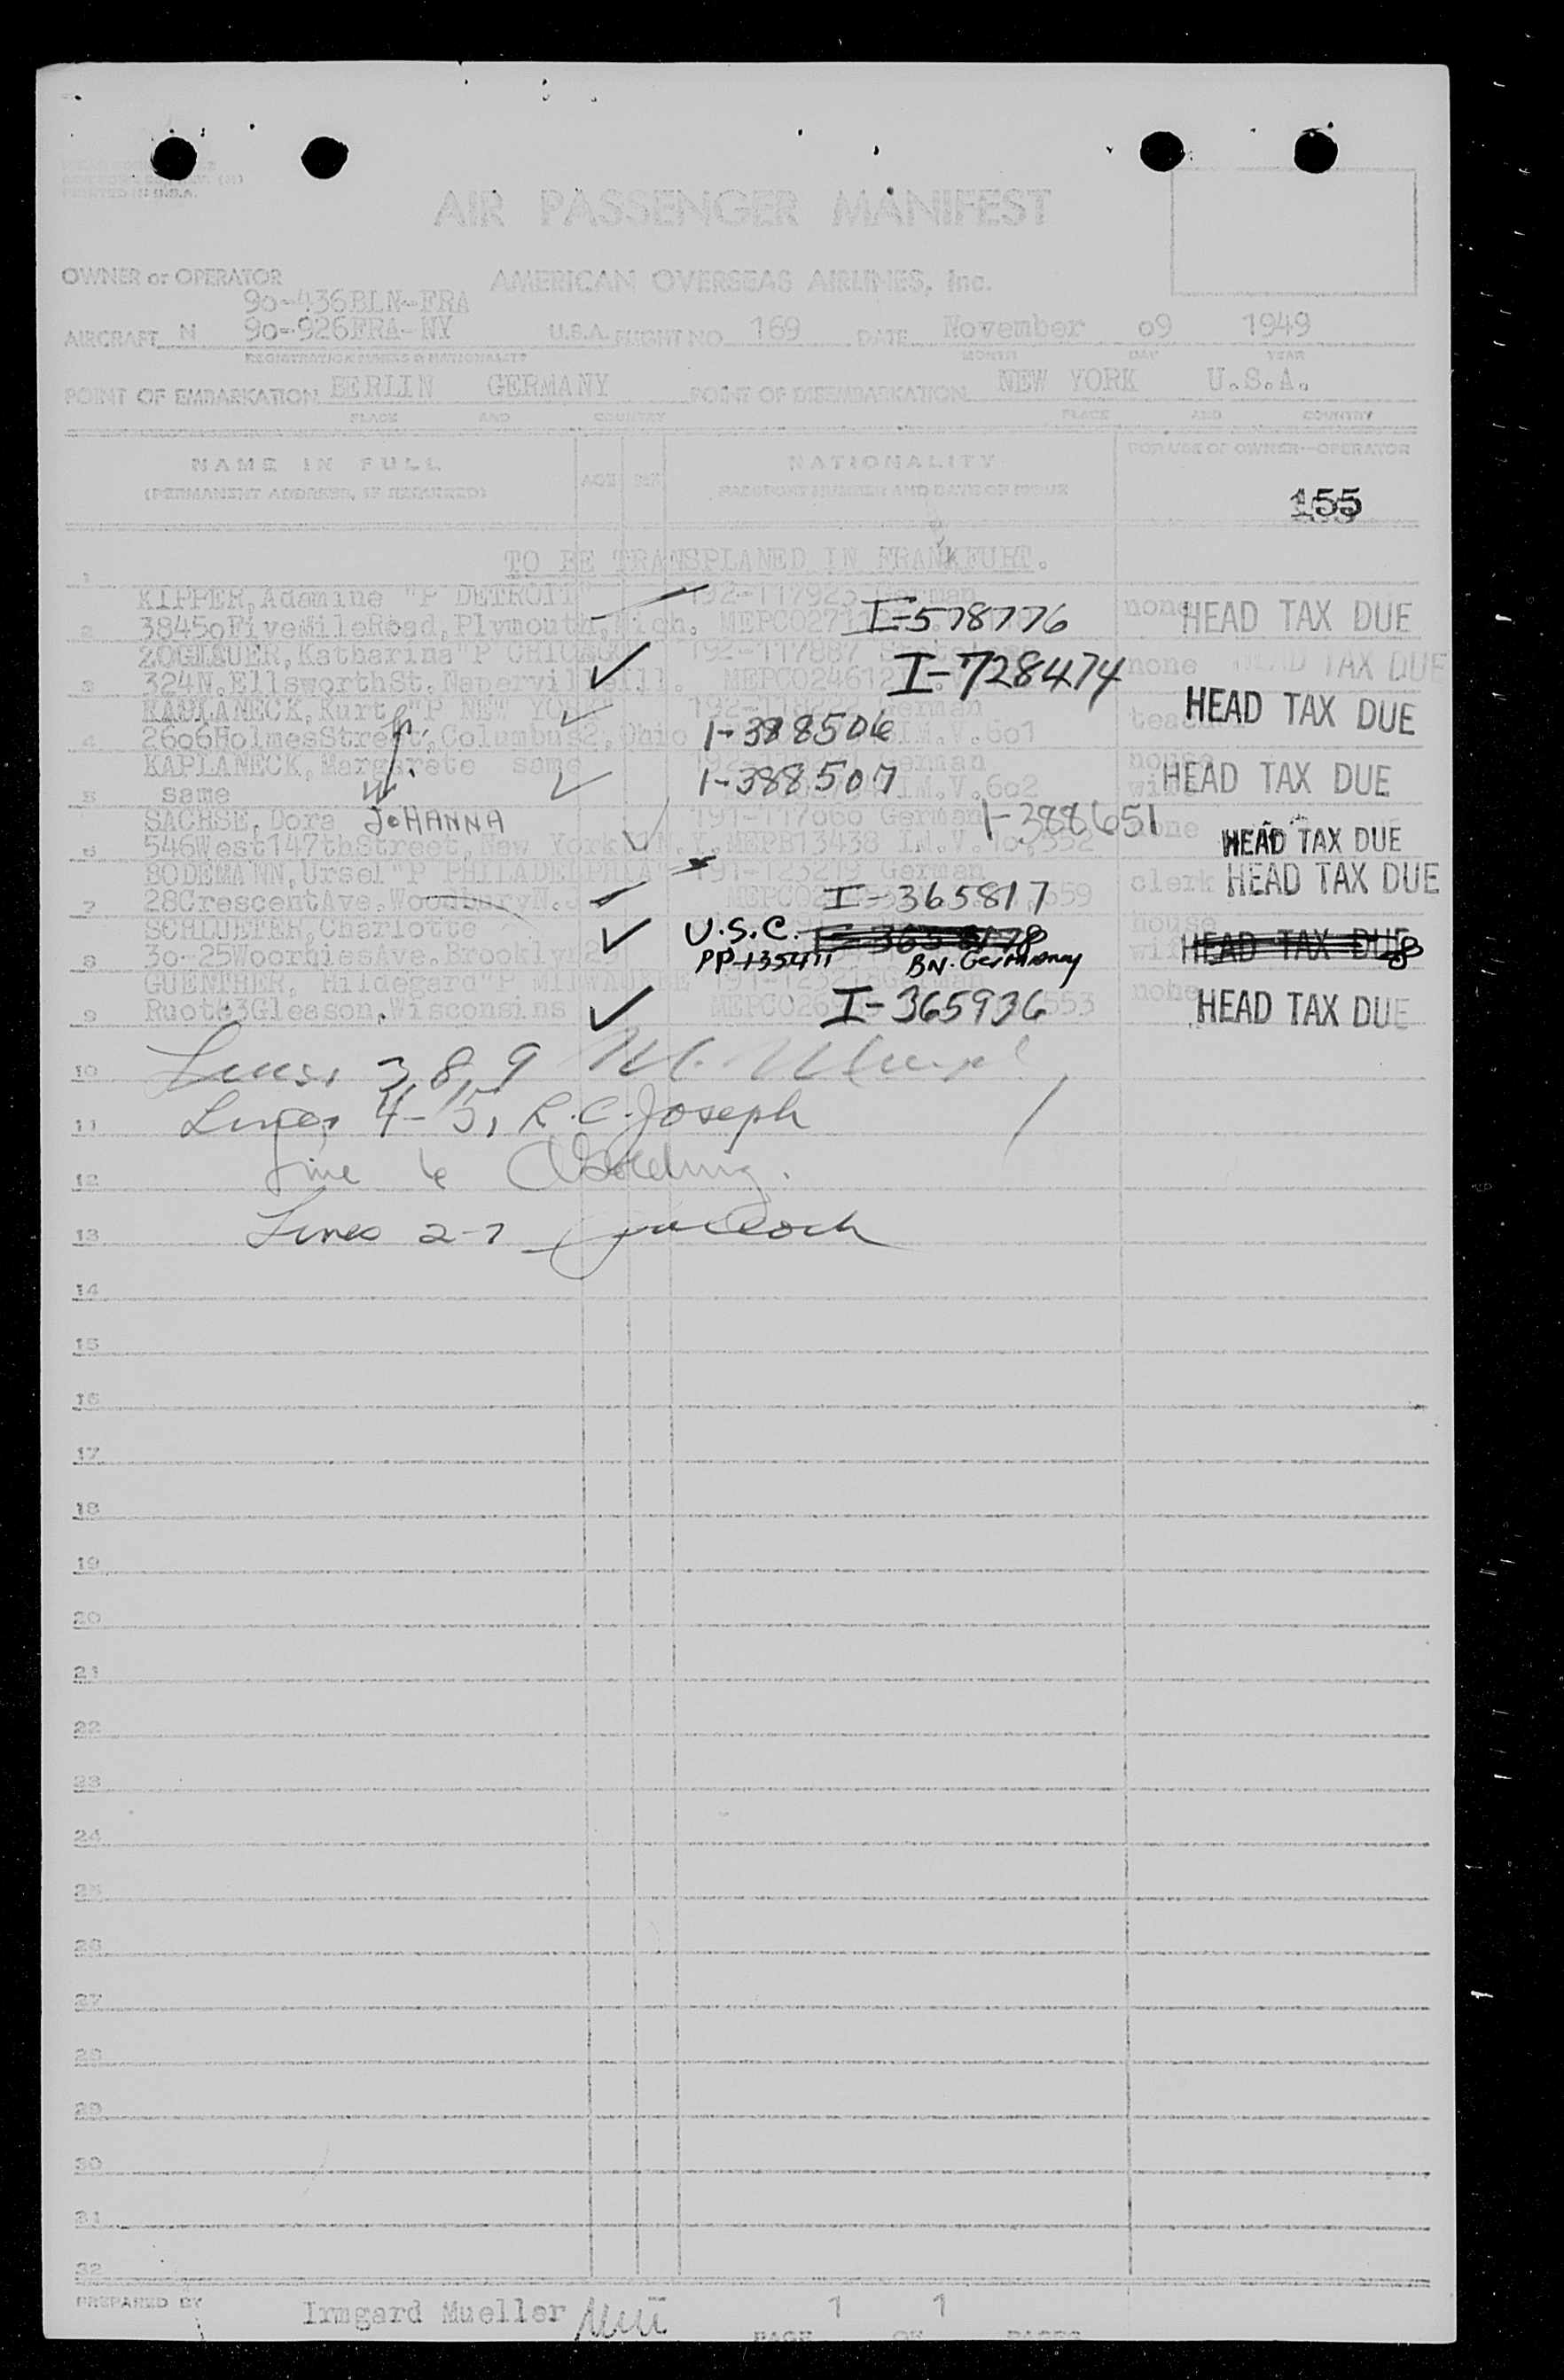 PRINTED IN U.S.A.
AIR PASSENGER MANIFEST
OWNER or OPERATOR AMERICAN OVERSEAS AIRLINES, Inc.
90-436BLN-FRA
AIRCRAFT N 90-926FRA-NY U.S.A. FLIGHT NO. 169 DATE November 09 1949
REGISTRATION MARKS & NATIONALITY MONTH DAY YEAR
POINT OF EMBARKATION BERLIN GERMANY POINT OF DISEMBARKATION NEW YORK U.S.A.
PLACE AND COUNTRY PLACE AND COUNTRY
NAME IN FULL AGE SEX NATIONALITY FOR USE OF OWNER—OPERATOR
(PERMANENT ADDRESS, IF REQUIRED) PASSPORT NUMBER AND DATE OF ISSUE
155
TO BE TRANSPLANED IN FRANKFURT.
1
KIPPER, Adamine "P DETROIT" 192-117925 German
2 38450FiveMileRoad, Plymouth, Mich. I-578776 none HEAD TAX DUE
ZOGLAUER, Katharina "P CHICAGO 192-117887
3 324N.EllsworthSt. Naperville Ill. MEPCO24612 I-728474 none HEAD TAX DUE
KAPLANECK, Kurt "P NEW YO German HEAD TAX DUE
4 2606HolmesStreet, Columbus2, Ohio 1-388506 IM.V.601
KAPLANECK, Margarete same German
5 same 1-388507 IM.V.602 HEAD TAX DUE
SACHSE, Dora JOHANNA 191-117060 German 1-388651
6 546West147thStreet, New York N.Y. MEPB13438 IM.V. HEAD TAX DUE
BODEMANN, Ursel "P PHILADELPHIA" 191-123219 German
7 28CrescentAve. Woodbury N.J. I-365817 clerk HEAD TAX DUE
SCHLUETER, Charlotte U.S.C. house
8 30-25VoorhiesAve. Brooklyn PP-135411 BN. Germany HEAD TAX DUE
GUENTHER, Hildegard "P MILWAUKEE
9 Ruot#3Gleason, Wisconsins I-365936 553 none HEAD TAX DUE
10 Lines 3, 8, 9
11 Lines 4-5, R.C. Joseph
12 Line 6
13 Lines 2-7
14
15
16
17
18
19
20
21
22
23
24
25
26
27
28
29
30
31
32
PREPARED BY Irmgard Mueller 1 1
PAGE OF PAGES